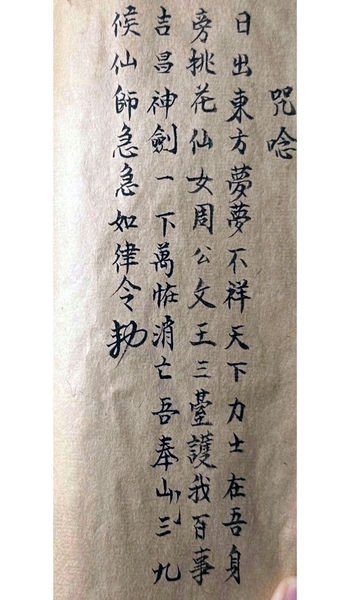 咒唸
日出東方夢夢不祥天下力士在吾身
旁挑花仙女周公文王三臺護我百事
吉昌神劍一下萬恠消亡吾奉山三九
候仙師急急如律令勑